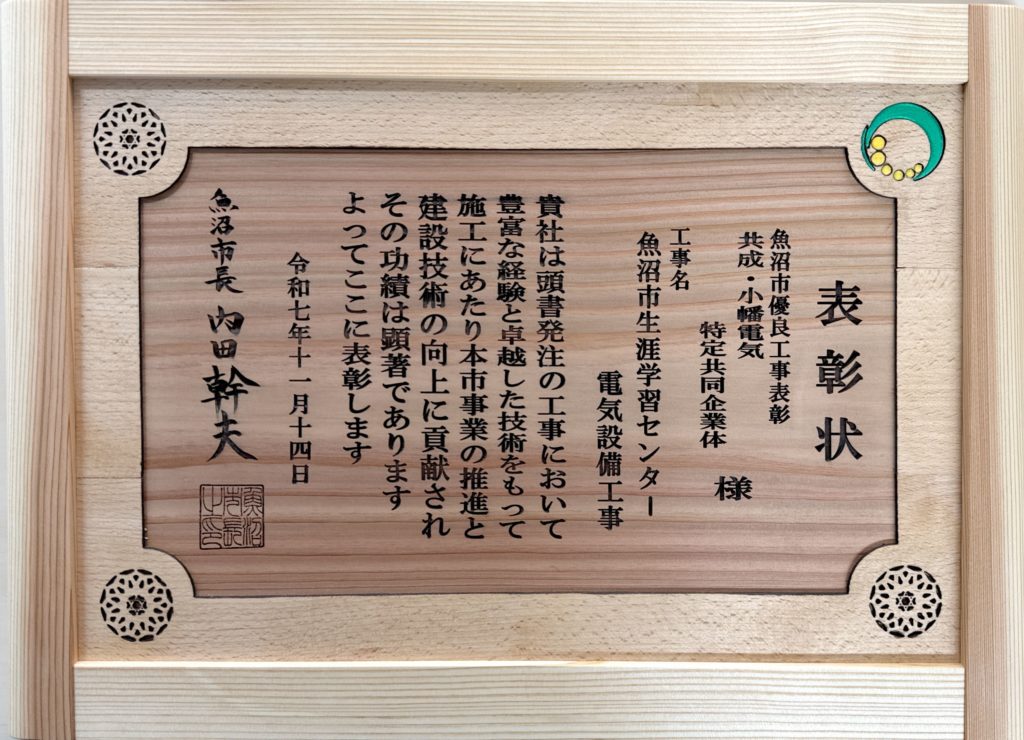 表彰状
魚沼市優良工事表彰
共成・小幡電気
特定共同企業体
様
工事名
魚沼市生涯学習センター
電気設備工事
貴社は頭書発注の工事において
豊富な経験と卓越した技術をもって
施工にあたり本市事業の推進と
建設技術の向上に貢献され
その功績は顕著であります
よってここに表彰します
令和七年十一月十四日
魚沼市長 内田幹夫
魚沼
市長
之印